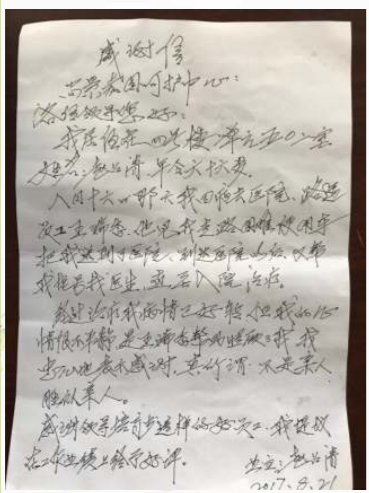 感谢信
尚景花园可护中心:
各位领导您好:
我居住在四号楼一单元五〇一室
姓名:赵品清,年令六十六岁。
八月十六日那天我因病去医院,路遇
员工 ,他见我走路困难使用车
把我送到了医院,到达医院 ,又帮
我挂号找医生,直至入院治疗。
经过治疗我病情已好转,但我的心
情很不平静,是 我,我
衷心地表示感谢,真所谓:不是亲人
胜似亲人。
感谢领导培育出这样的好员工,我提议
在工作业绩上给予好评。
业主:赵品清
2017.8.21